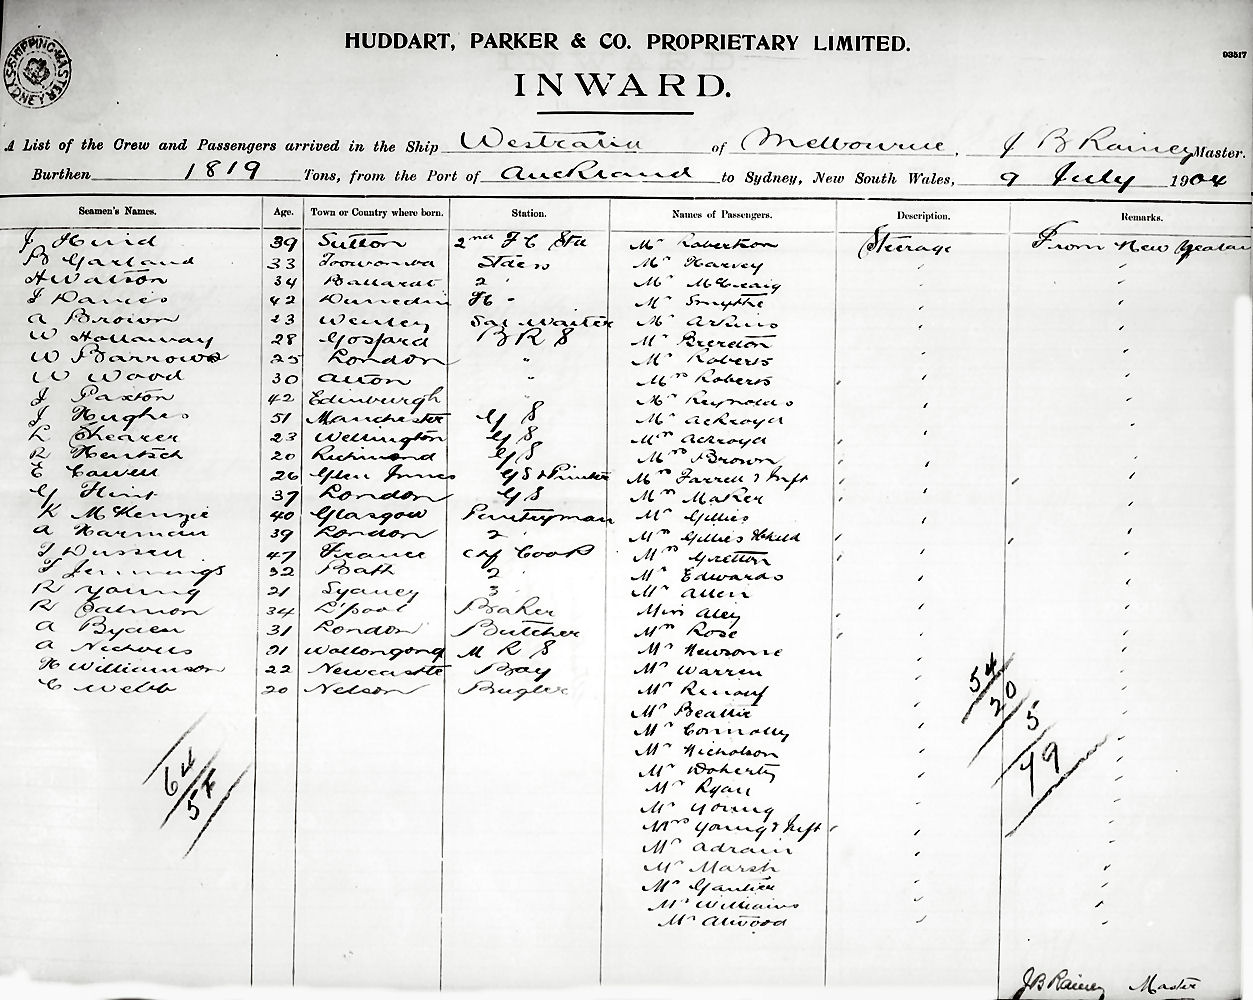 HUDDART, PARKER & CO. PROPRIETARY LIMITED.
93517
SHIPPING MASTER SYDNEY
INWARD.
A List of the Crew and Passengers arrived in the Ship Westralia of Melbourne, J B Rainey Master.
Burthen 1819 Tons, from the Port of Auckland to Sydney, New South Wales, 9 July 1904
Seamen's Names. Age. Town or Country where born. Station. Names of Passengers. Description. Remarks.
J Hird 39 Sutton 2nd F C Std Mr Robertson Steerage From New Zealand
B Garland 33 Toowomba Stdess Mr Harvey
H Watson 34 Ballarat 2 " Mr McCraig
J Davies 42 Dunedin Fh " Mr Smythe
A Brown 23 Wenley Sal Waiter Mr Arkins
W Hollaway 28 Gosford B R S Mr Brereton
W Barrows 25 London " Mr Roberts
W Wood 30 Alton " Mrs Roberts
J Paxton 42 Edinburgh " Mr Reynolds
J Hughes 51 Manchester G S Mr Ackroyd
L Shearer 23 Wellington G S Mrs Ackroyd
R Hentsch 20 Richmond G S Mrs Brown
E Cowell 26 Glen Innes G S & Printer Mrs Farrell & Inft
G Flint 37 London G S Mrs Maher
K McKenzie 40 Glasgow Pantryman Mr Gillies
A Harman 39 London 2 " Mrs Gillies & Child
J Dussell 47 France Chf Cook Mrs Gretton
T Jennings 32 Bath 2 Mr Edwards
R Young 21 Sydney 3 Mr Allen
R Salmon 34 L'pool Baker Miss Aley
A Byden 31 London Butcher Mrs Rose
A Nicholls 21 Wollongong M R S Mr Newsome
H Williamson 22 Newcastle Boy Mr Warren
C Webb 20 Nelson Bugler Mr Renouf
Mr Beattie
Mr Connolly
Mr Nicholson
Mr Doherty
Mr Ryan
Mr Young
Mrs Young & Inft
Mr Adrain
Mr Marsh
Mr Gautier
Mr Williams
Mr Atwood
64
54
20
5
79
J B Rainey Master